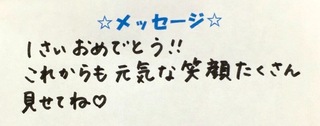 ☆メッセージ☆
1さいおめでとう!!
これからも元気な笑顔たくさん
見せてね♡